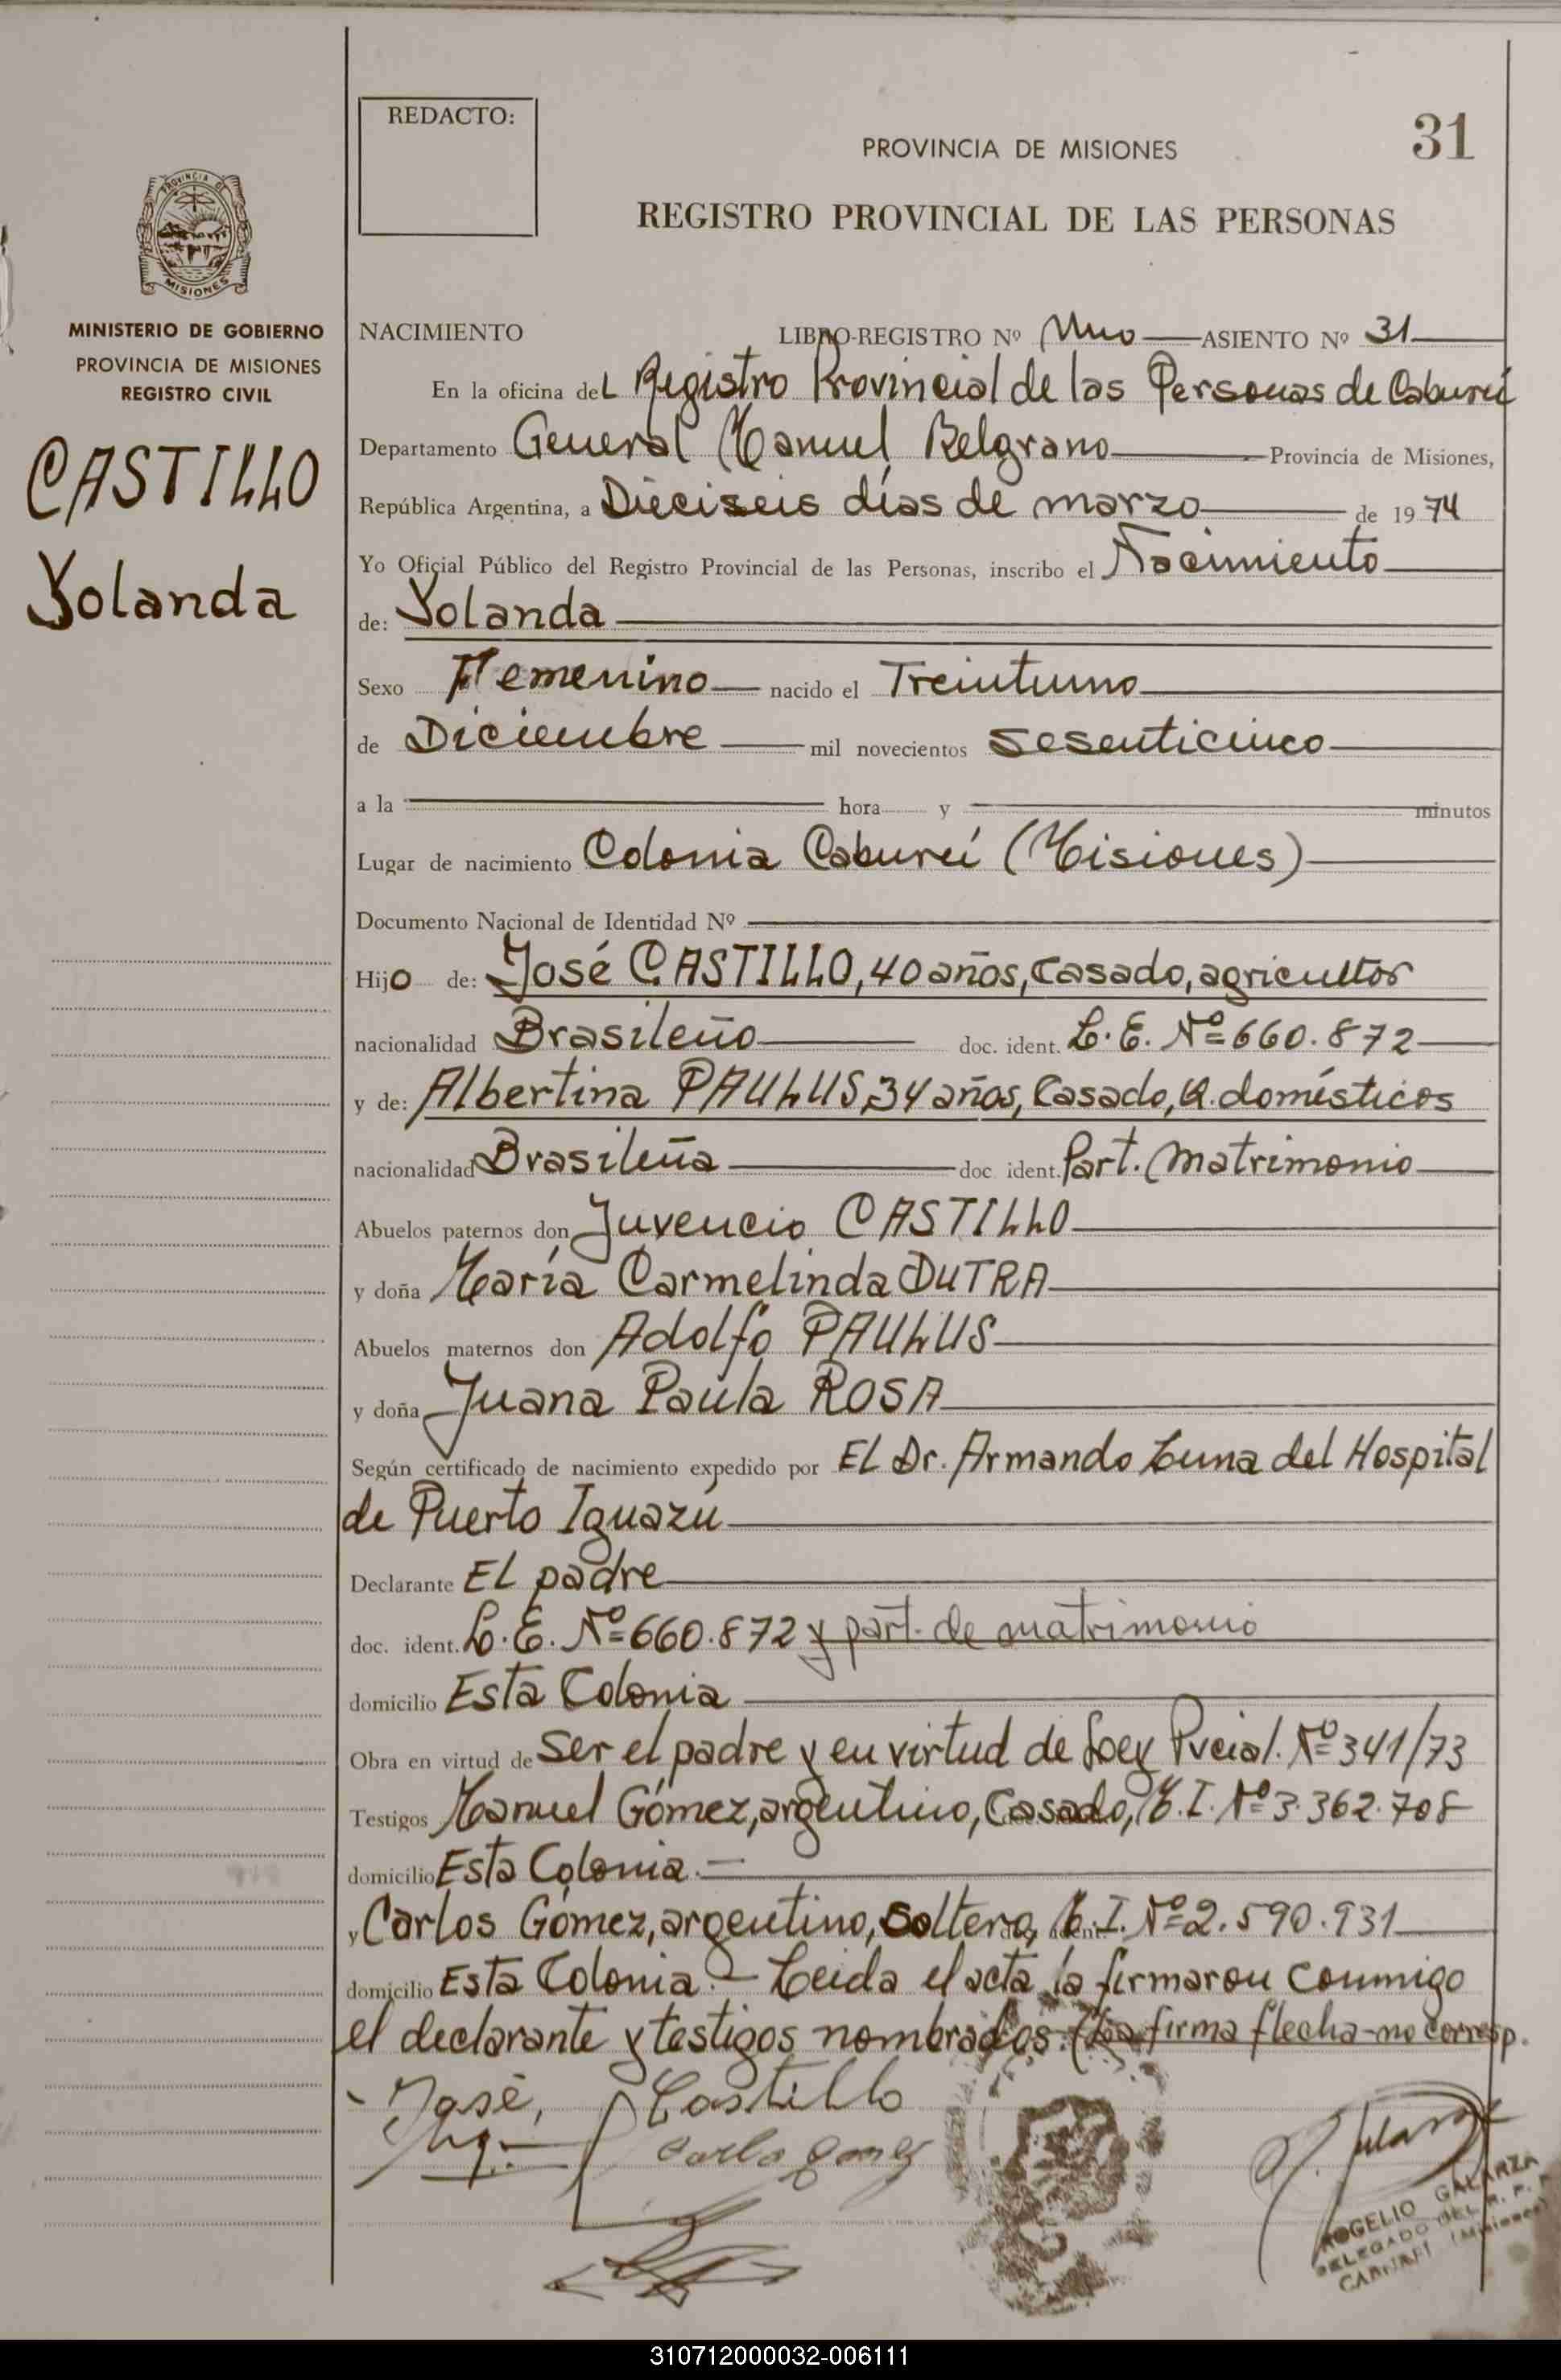 REDACTO:
PROVINCIA DE MISIONES
31
REGISTRO PROVINCIAL DE LAS PERSONAS
PROVINCIA DE
MISIONES
MINISTERIO DE GOBIERNO
PROVINCIA DE MISIONES
REGISTRO CIVIL
CASTILLO
Yolanda
NACIMIENTO LIBRO-REGISTRO Nº Uno ASIENTO Nº 31
En la oficina del Registro Provincial de las Personas de Cabureí
Departamento General Manuel Belgrano Provincia de Misiones,
República Argentina, a Dieciseis días de marzo de 1974
Yo Oficial Público del Registro Provincial de las Personas, inscribo el Nacimiento
de: Yolanda
Sexo Femenino nacido el Treintuno
de Diciembre mil novecientos sesenticinco
a la hora y minutos
Lugar de nacimiento Colonia Cabureí (Misiones)
Documento Nacional de Identidad Nº
Hijo de: José CASTILLO, 40 años, casado, agricultor
nacionalidad Brasileño doc. ident. L. E. Nº 660.872
y de: Albertina PAULUS, 34 años, Casado, Q. domésticos
nacionalidad Brasileña doc. ident. Part. Matrimonio
Abuelos paternos don Juvencio CASTILLO
y doña María Carmelinda DUTRA
Abuelos maternos don Adolfo PAULUS
y doña Juana Paula ROSA
Según certificado de nacimiento expedido por El Dr. Armando Luna del Hospital
de Puerto Iguazú
Declarante El padre
doc. ident. L. E. Nº 660.872 y part. de matrimonio
domicilio Esta Colonia
Obra en virtud de ser el padre y en virtud de Ley Pvcial. Nº 341/73
Testigos Manuel Gómez, argentino, Casado, M. I. Nº 3.362.708
domicilio Esta Colonia.-
y Carlos Gómez, argentino, soltero, M. I. Nº 2.590.931
domicilio Esta Colonia.- Leida el acta la firmaron conmigo
el declarante y testigos nombrados. (La firma flecha-no corresp.
José, Castillo
Carlo Gomez
ROGELIO GALARZA
DELEGADO DEL R. P. P.
CABUREI (Misiones)
310712000032-006111